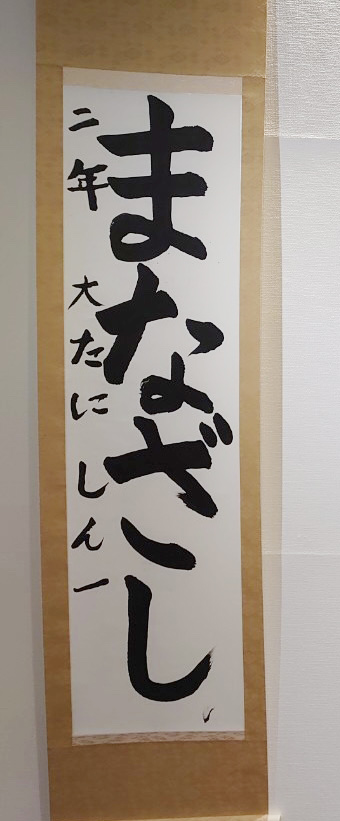 まなざし
二年 大たに しん一